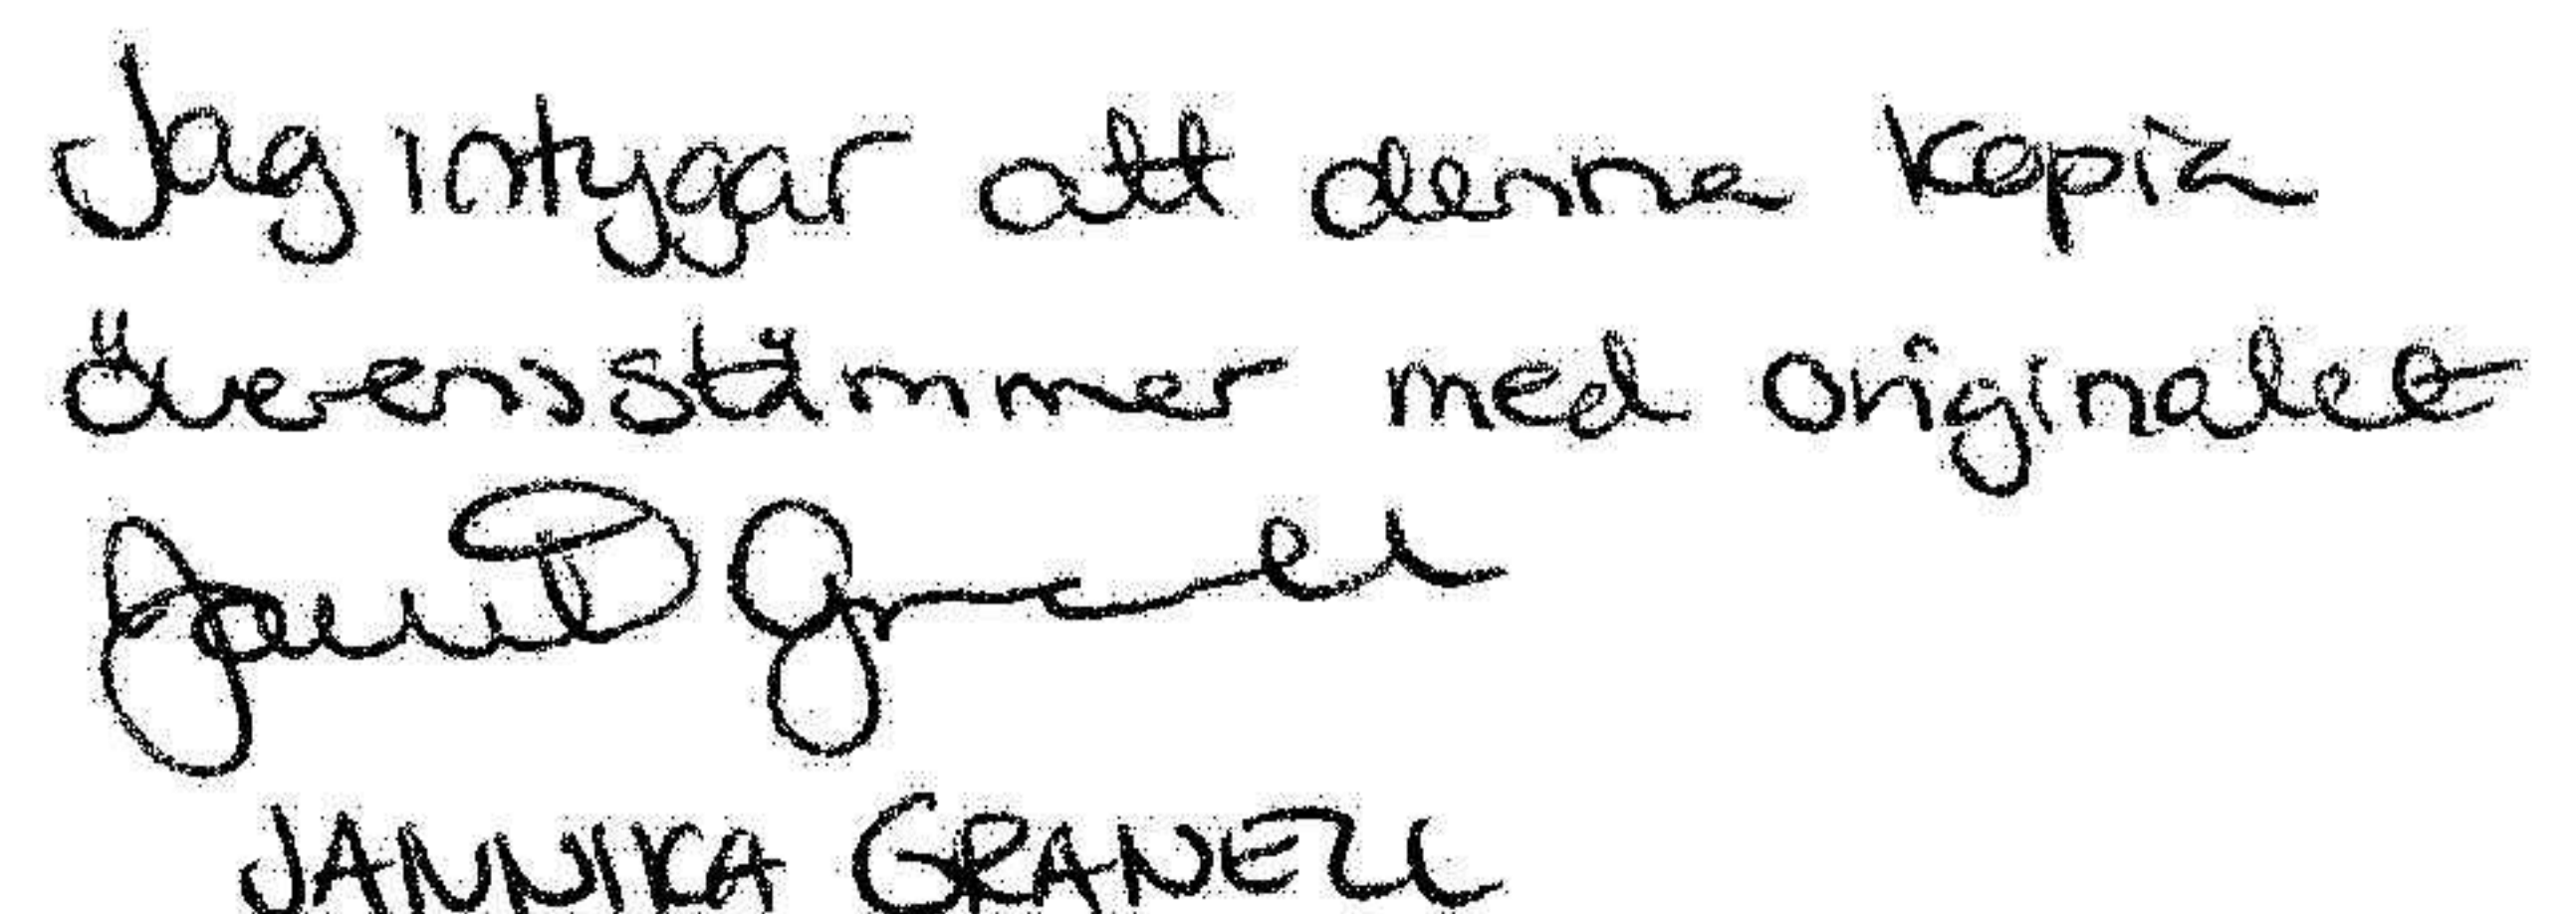 Jag intygar att denna kopia
överensstämmer med originalet
JANNIKA GRANELL